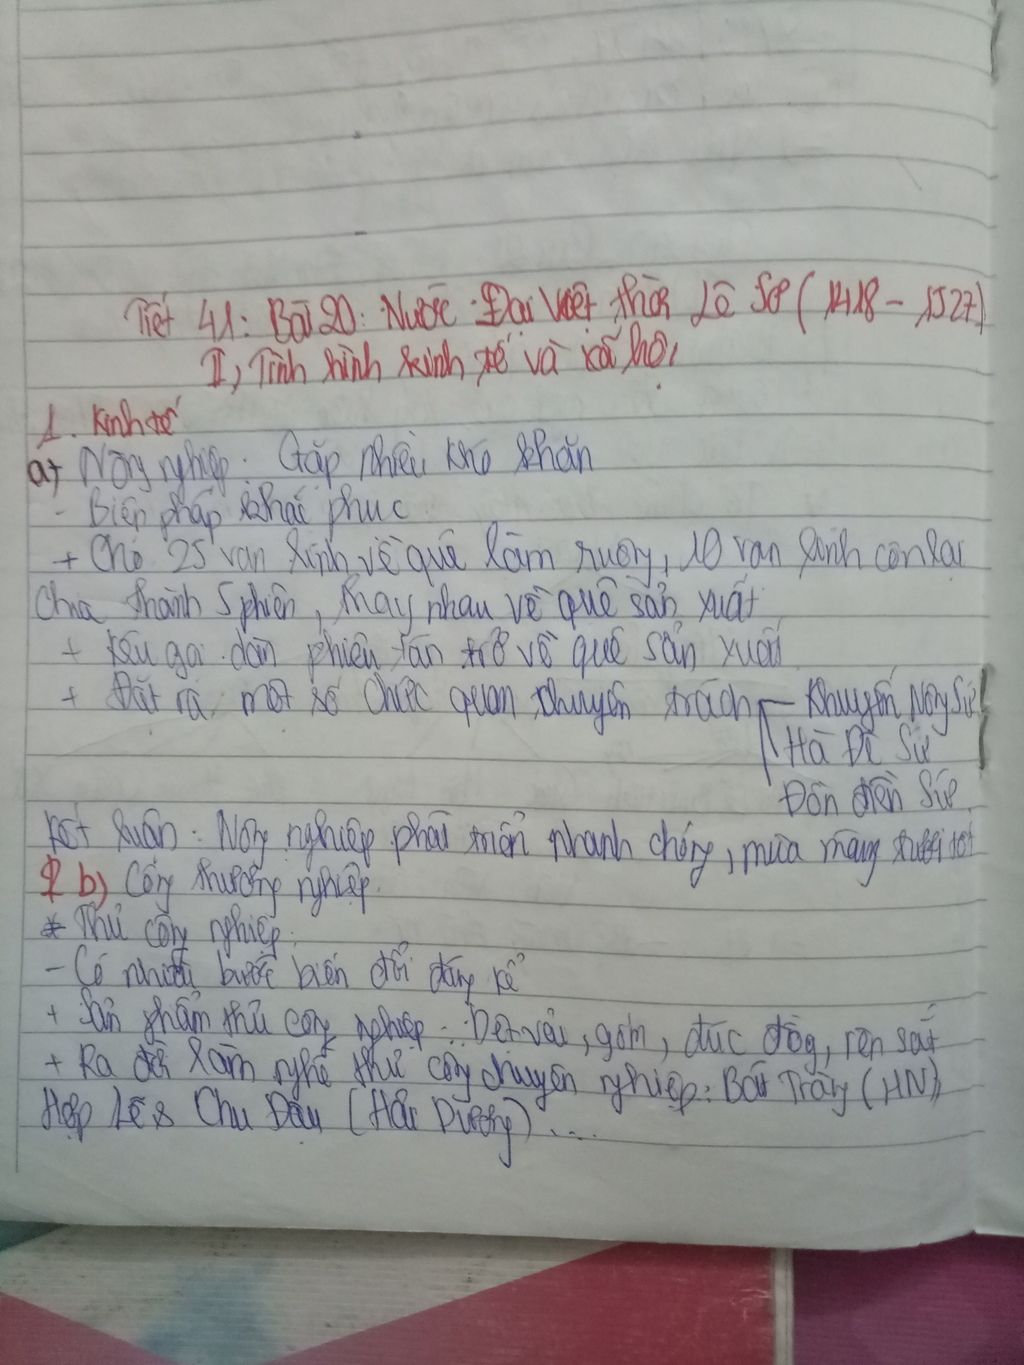 Tiết 41: Bài 20: Nước Đại Việt thời Lê Sơ (1418 - 1527)
II, Tình hình kinh tế và xã hội
1. Kinh tế
a, Nông nghiệp: Gặp nhiều khó khăn
- Biện pháp khắc phục
+ Cho 25 vạn lính về quê làm ruộng, 10 vạn lính còn lại
Chia thành 5 phiên, thay nhau về quê sản xuất
+ Kêu gọi dân phiêu tán trở về quê sản xuất
+ Đặt ra một số chức quan chuyên trách - Khuyến Nông Sứ
Hà Đê Sứ
Đồn điền Sứ
Kết luận: Nông nghiệp phát triển nhanh chóng, mùa màng tươi tốt
b) Công thương nghiệp.
* Thủ công nghiệp:
- Có nhiều bước biến đổi đáng kể
+ Sản phẩm thủ công nghiệp: Dệt vải, gốm, đúc đồg, rèn sắt
+ Ra đời làm nghề thủ công chuyên nghiệp: Bát Tràng (HN)
Hợp Lễ & Chu Đậu (Hải Dương) ...